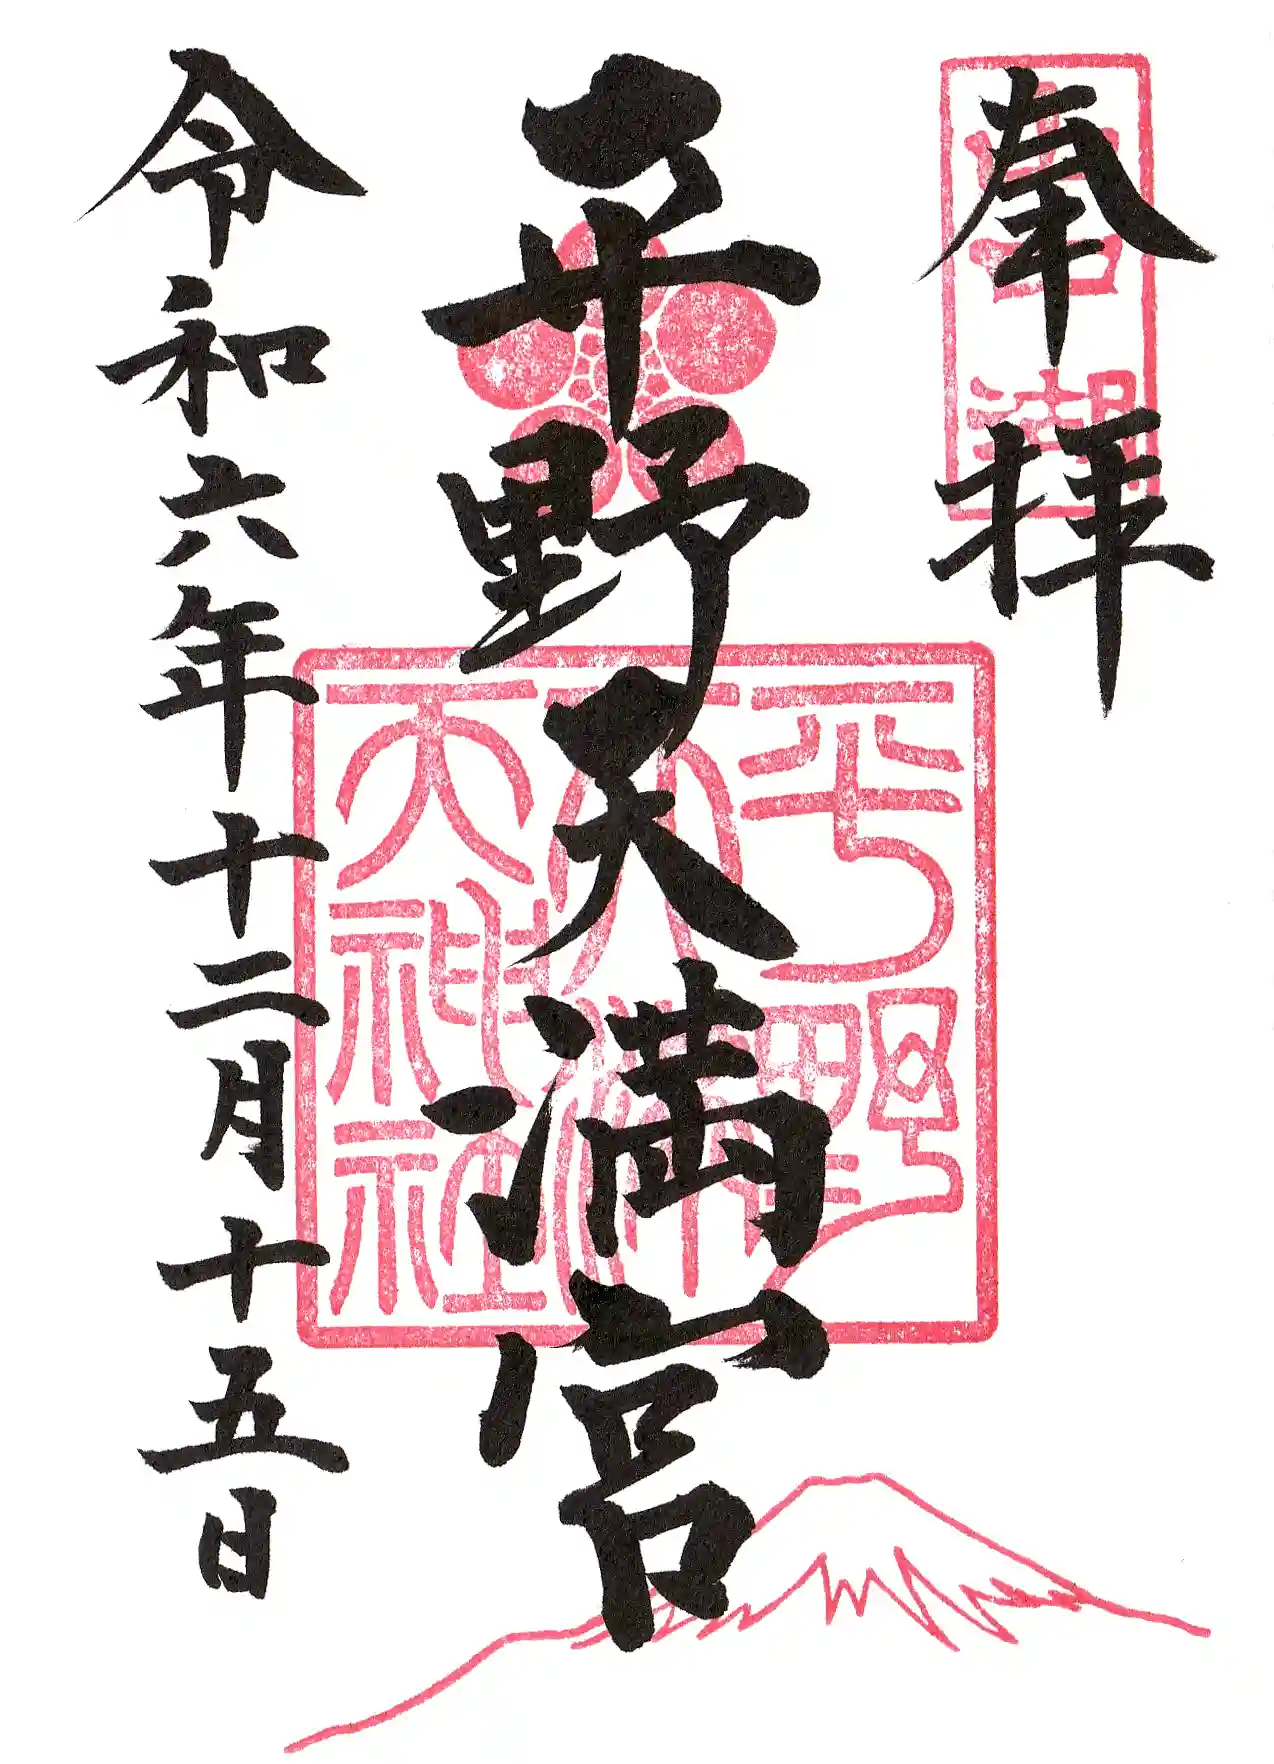 奉拝
平野天満宮
令和六年十二月十五日
平野
天満
天神社